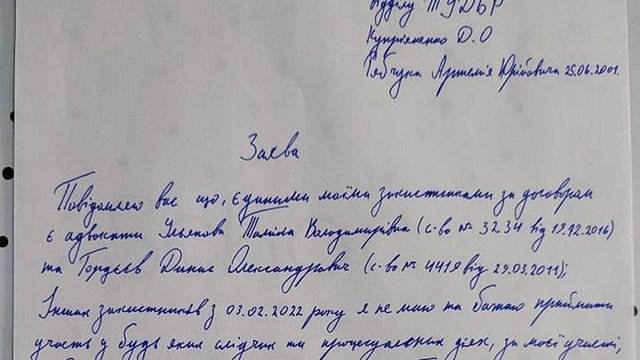 Відділу ТУДБР
Купрієненко Д.О
Рябчука Артемія Юрійовича 25.06.2001.
Заява
Повідомляю вас що, єдиними моїми захистниками за договорам
є адвокати Ульянова Таміла Володимирівна (с-во № 3234 від 19.12.2016)
та Гордєєв Динис Олександрович (с-во № 4419 від 29.03.2011);
Інших захистників з 03.02.2022 року я не маю та бажаю приймати
участь у будь яких слідчих та процесуальних діях, за моєї участі,